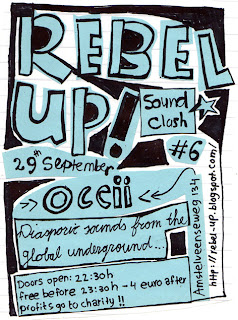 REBEL
UP!
Sound
Clash
#6
29th September
→ OCEII ←
Diasporic sounds from the
global underground...
Doors open: 22:30h
free before 23:30h - 4 euro after
profits go to charity!!
Amstelveenseweg 134
http://rebel-up.blogspot.com/